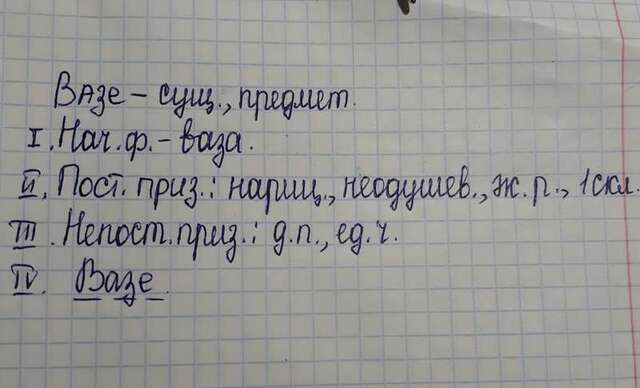 Вазе – сущ., предмет.
I. Нач. ф. – ваза.
II. Пост. приз.: нариц., неодушев., ж. р., 1 скл.
III. Непост. приз.: д.п., ед.ч.
IV. Вазе.